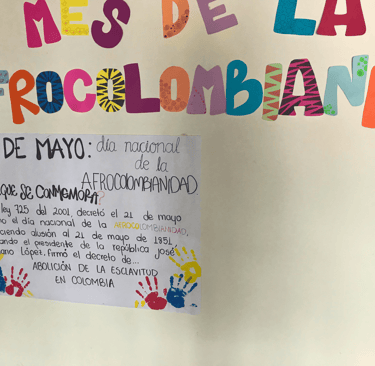 MES DE LA
FROCOLOMBIAN
DE MAYO: día nacional
de la
AFROCOLOMBIANIDAD
QUE SE CONMEMORA?
ley 725 del 2001, decretó el 21 de mayo
o el día nacional de la AFROCOLOMBIANIDAD,
ciendo alusión al 21 de mayo de 1851,
ando el presidente de la república José
ano López. Firmó el decreto de...
ABOLICIÓN DE LA ESCLAVITUD
EN COLOMBIA